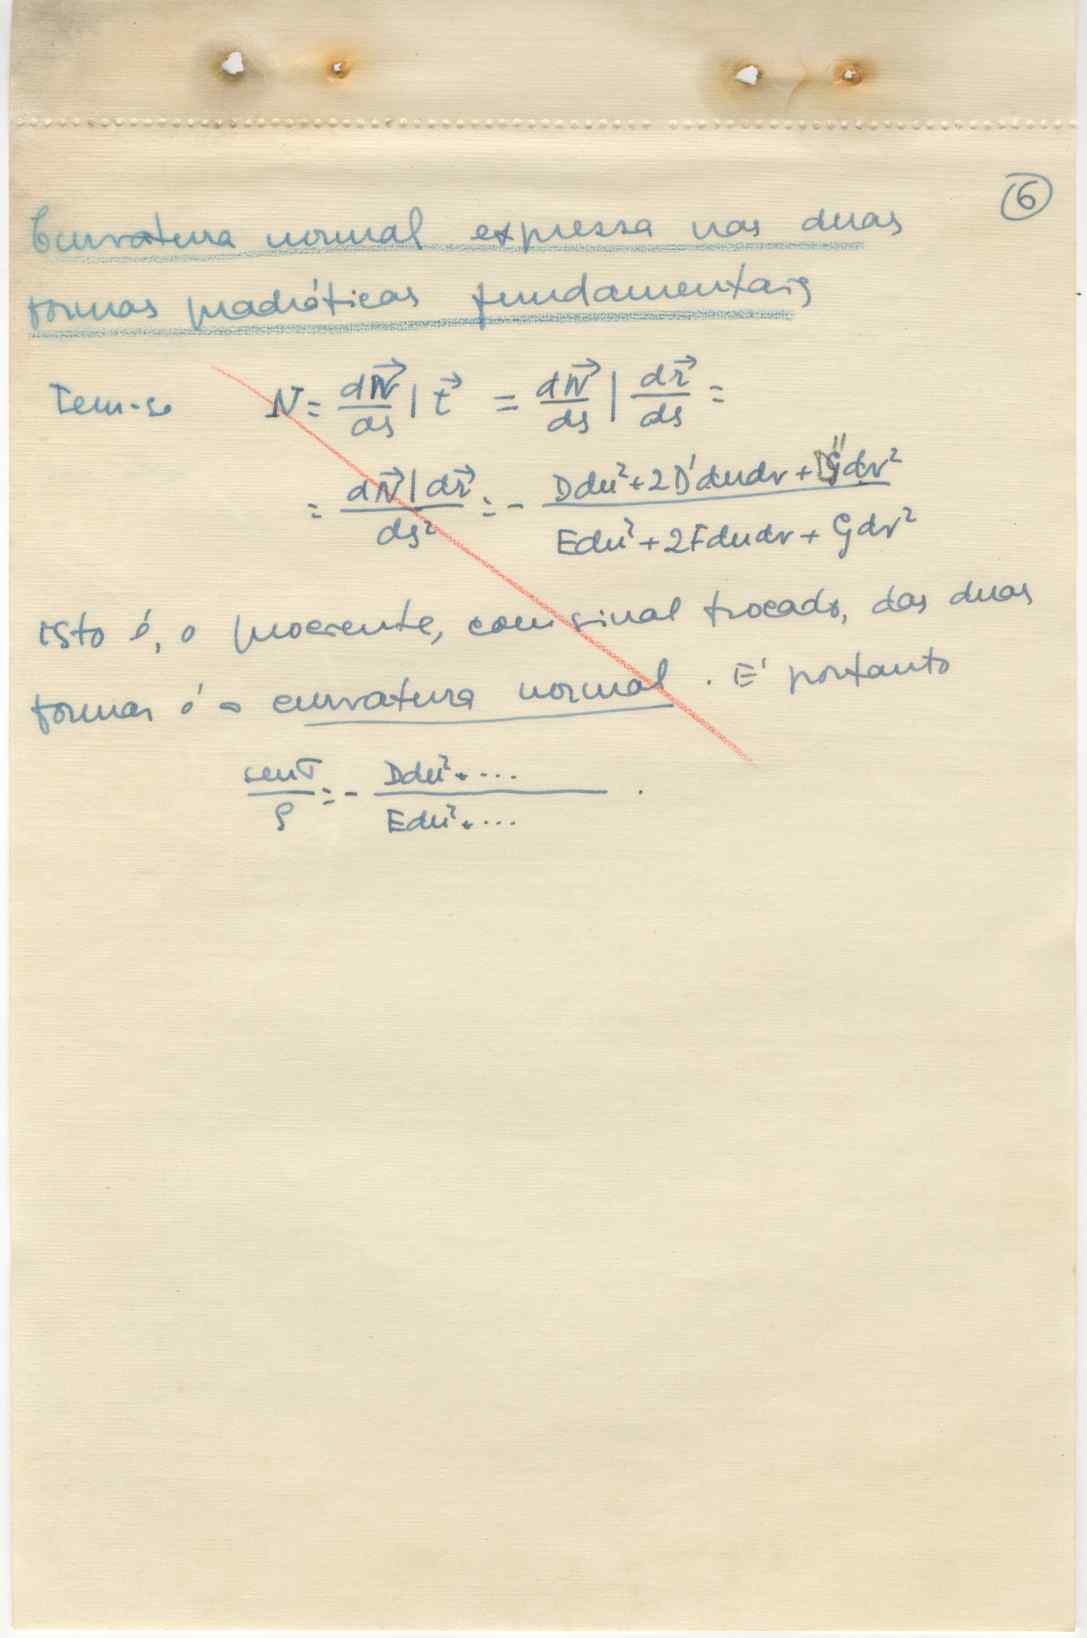 6
Curvatura normal expressa nas duas
formas quadráticas fundamentais
Tem-se N = \frac{d\vec{N}}{ds} | \vec{t} = \frac{d\vec{N}}{ds} | \frac{d\vec{r}}{ds} =
= \frac{d\vec{N} | d\vec{r}}{ds^2} = - \frac{Ddu^2 + 2D'dudv + D''dv^2}{Edu^2 + 2Fdudv + Gdv^2}
isto é, o quociente, com sinal trocado, das duas
formas é a curvatura normal. É portanto
\frac{sen σ}{ρ} = - \frac{Ddu^2 + ....}{Edu^2 + ....} .